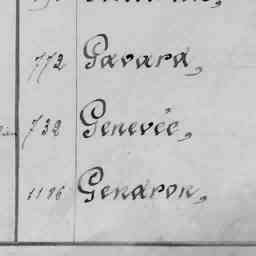 772 Gavard,
732 Genevée,
1196 Gendron,